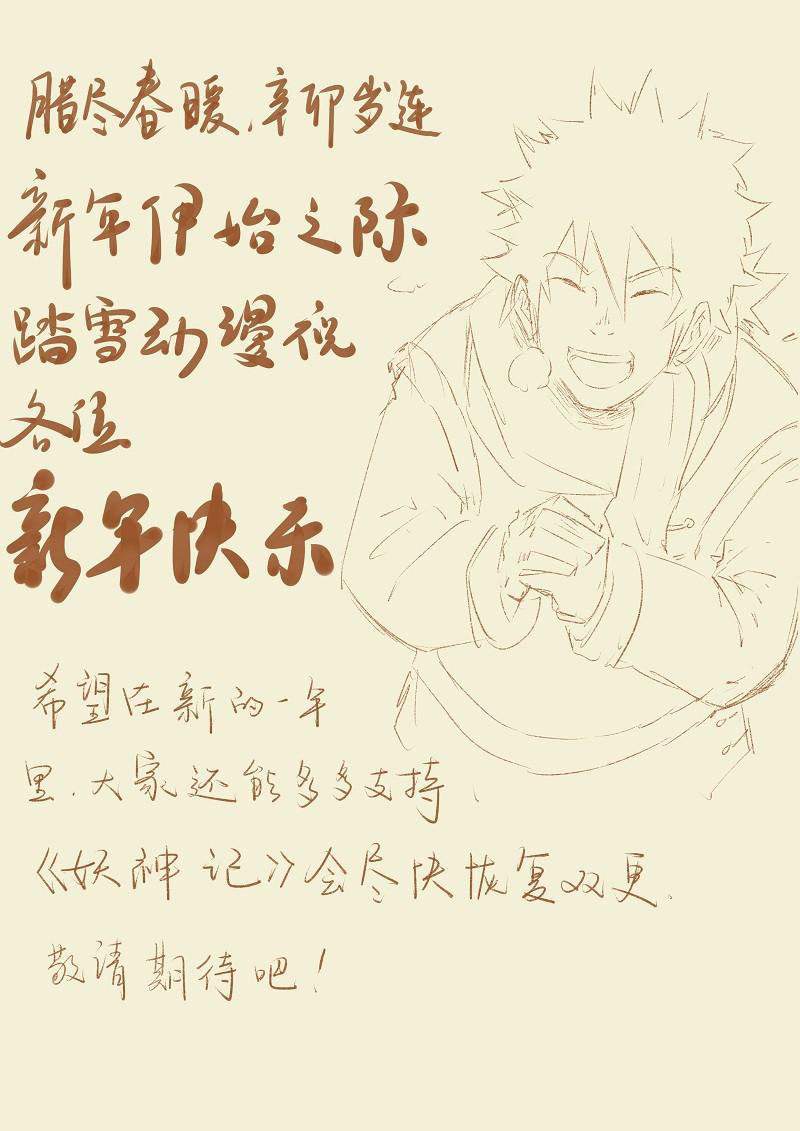 腊尽春暖,辛卯岁连
新年伊始之际
踏雪动漫祝
各位
新年快乐
希望在新的一年
里.大家还能多多支持
《妖神记》会尽快恢复双更.
敬请期待吧!